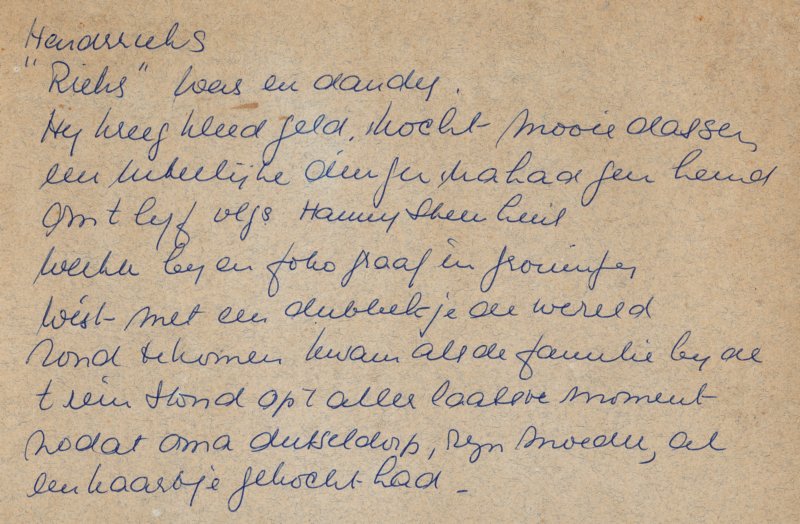 Hendericks
"Rieks" was en dandy.
Hy kreeg kleedgeld, kocht mooie dassen
een uiterlijke dingen, maar had geen hemd
om t lyf vlgs Hanny Steenhuis
werkte by en fotograaf in Groningen
wist met een dubbeltje de wereld
rond te komen kwam als de familie by de
trein stond op 't aller laatste moment
zodat oma Dusseldorp, zyn moeder, al
een kaartje gekocht had -